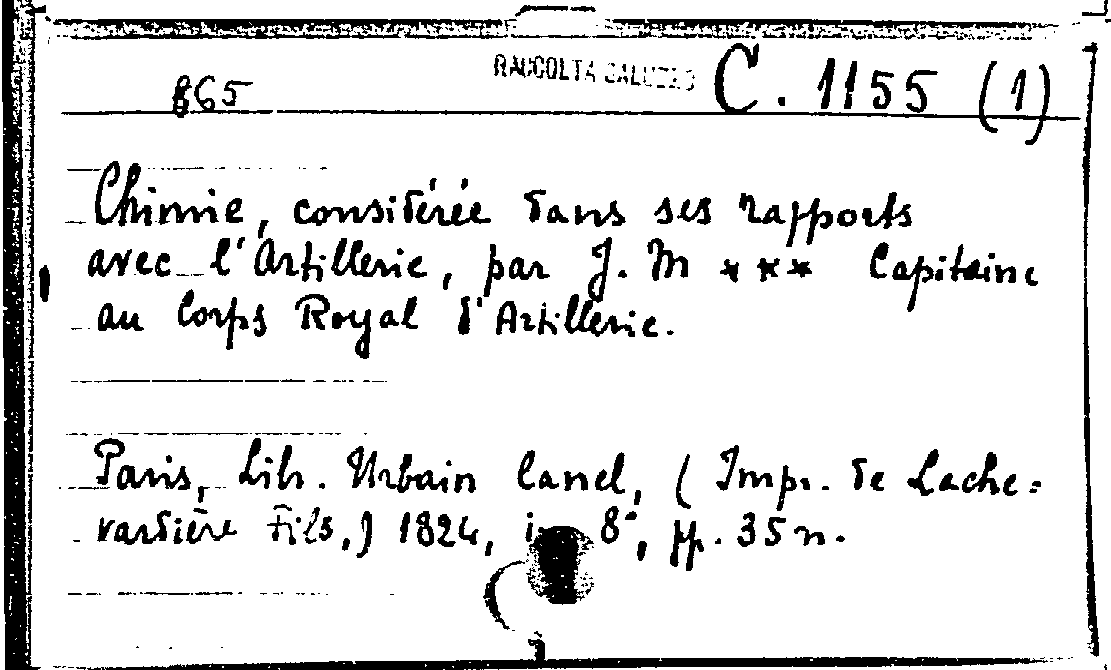 865 RACCOLTA SALUZZO C. 1155 (1)
Chimie, considérée dans ses rapports
avec l'Artillerie, par J. M *** Capitaine
au Corps Royal d'Artillerie.
Paris, Lib. Urbain Canel, (Impr. de Lache=
vardière Fils,) 1824, in 8°, pp. 35 n.